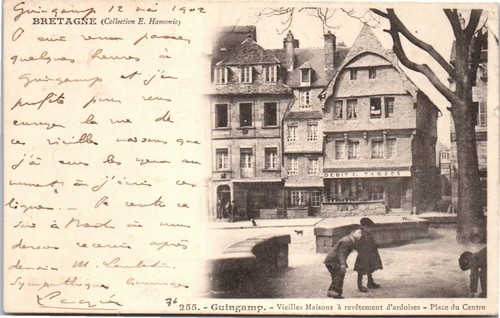 Guingamp 12 mai 1902
BRETAGNE (Collection E. Hamonic)
passer
quelques heures à
Guingamp et j'en
profite pour vous
envoyer la vue de
ces vieilles maisons que
j'ai sous les yeux au
moment où j'écris ces
lignes. Je rentre ce
soir à Brest où nous
devons recevoir après
demain M. Loubet.
Sympathiques hommages
DEBIT DE TABACS
76
255. - Guingamp. - Vieilles Maisons à revêtement d'ardoises - Place du Centre